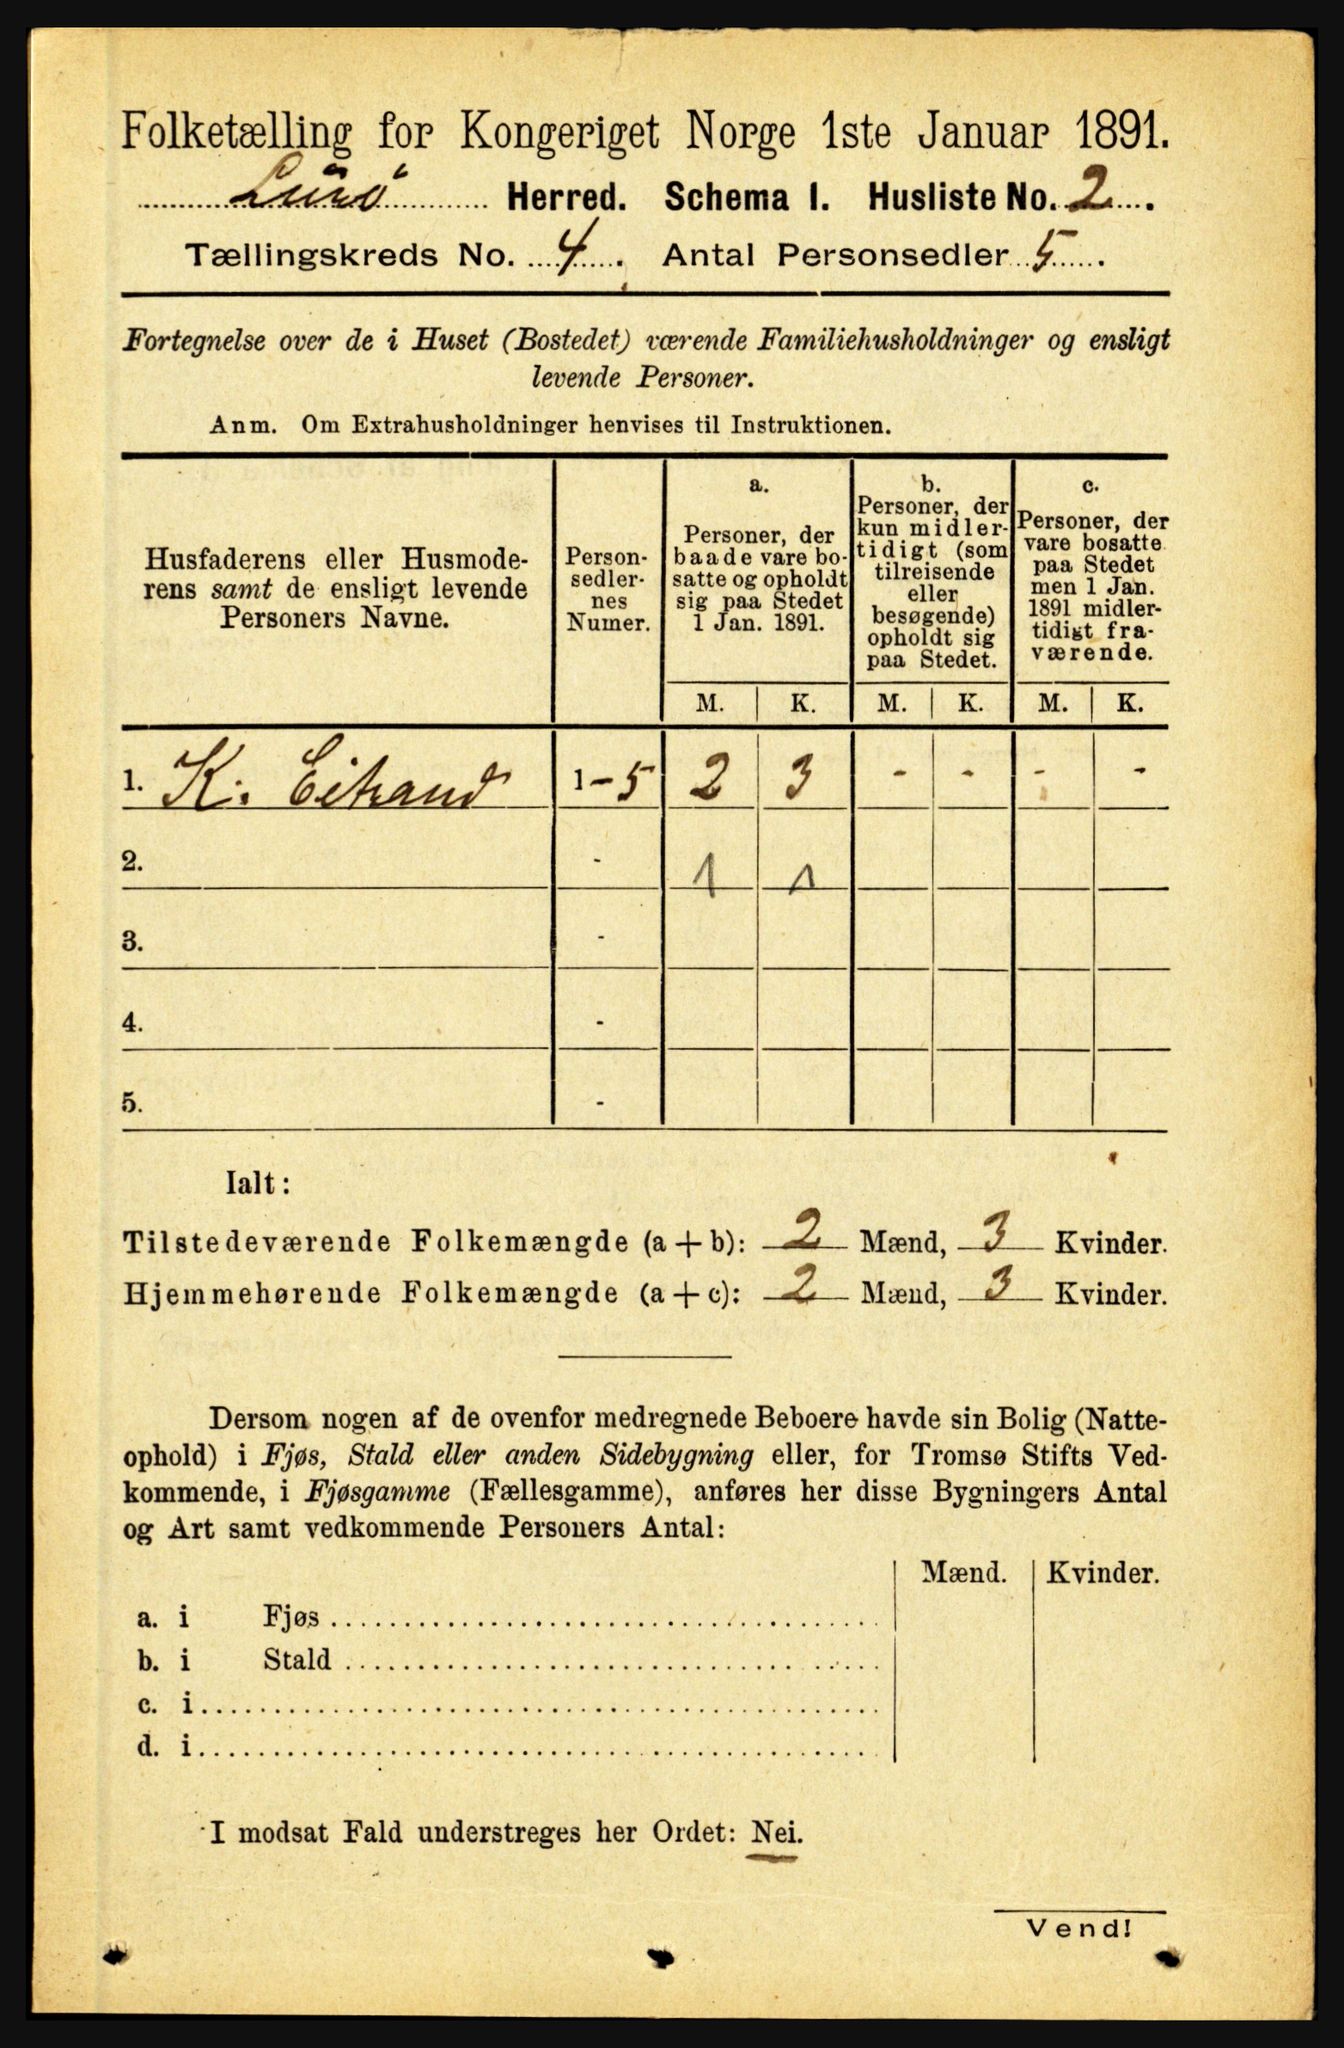 Folketælling for Kongeriget Norge 1ste Januar 1891.
Lurø Herred. Schema I. Husliste No. 2.
Tællingskreds No. 4. Antal Personsedler 5.
Fortegnelse over de i Huset (Bostedet) værende Familiehusholdninger og ensligt
levende Personer.
Anm. Om Extrahusholdninger henvises til Instruktionen.
Husfaderens eller Husmode-
rens samt de ensligt levende
Personers Navne.
Person-
sedler-
nes
Numer.
a.
Personer, der
baade vare bo-
satte og opholdt
sig paa Stedet
1 Jan. 1891.
b.
Personer, der
kun midler-
tidigt (som
tilreisende
eller
besøgende)
opholdt sig
paa Stedet.
c.
Personer, der
vare bosatte
paa Stedet
men 1 Jan.
1891 midler-
tidigt fra-
værende.
M. K. M. K. M. K.
1. K. Eitrand 1-5 2 3 - - - -
2. - 1 1
3. -
4. -
5. -
Ialt:
Tilstedeværende Folkemængde (a+b): 2 Mænd, 3 Kvinder.
Hjemmehørende Folkemængde (a+c): 2 Mænd, 3 Kvinder.
Dersom nogen af de ovenfor medregnede Beboere havde sin Bolig (Natte-
ophold) i Fjøs, Stald eller anden Sidebygning eller, for Tromsø Stifts Ved-
kommende, i Fjøsgamme (Fællesgamme), anføres her disse Bygningers Antal
og Art samt vedkommende Personers Antal:
Mænd. Kvinder.
a. i Fjøs
b. i Stald
c. i
d. i
I modsat Fald understreges her Ordet: Nei.
Vend!